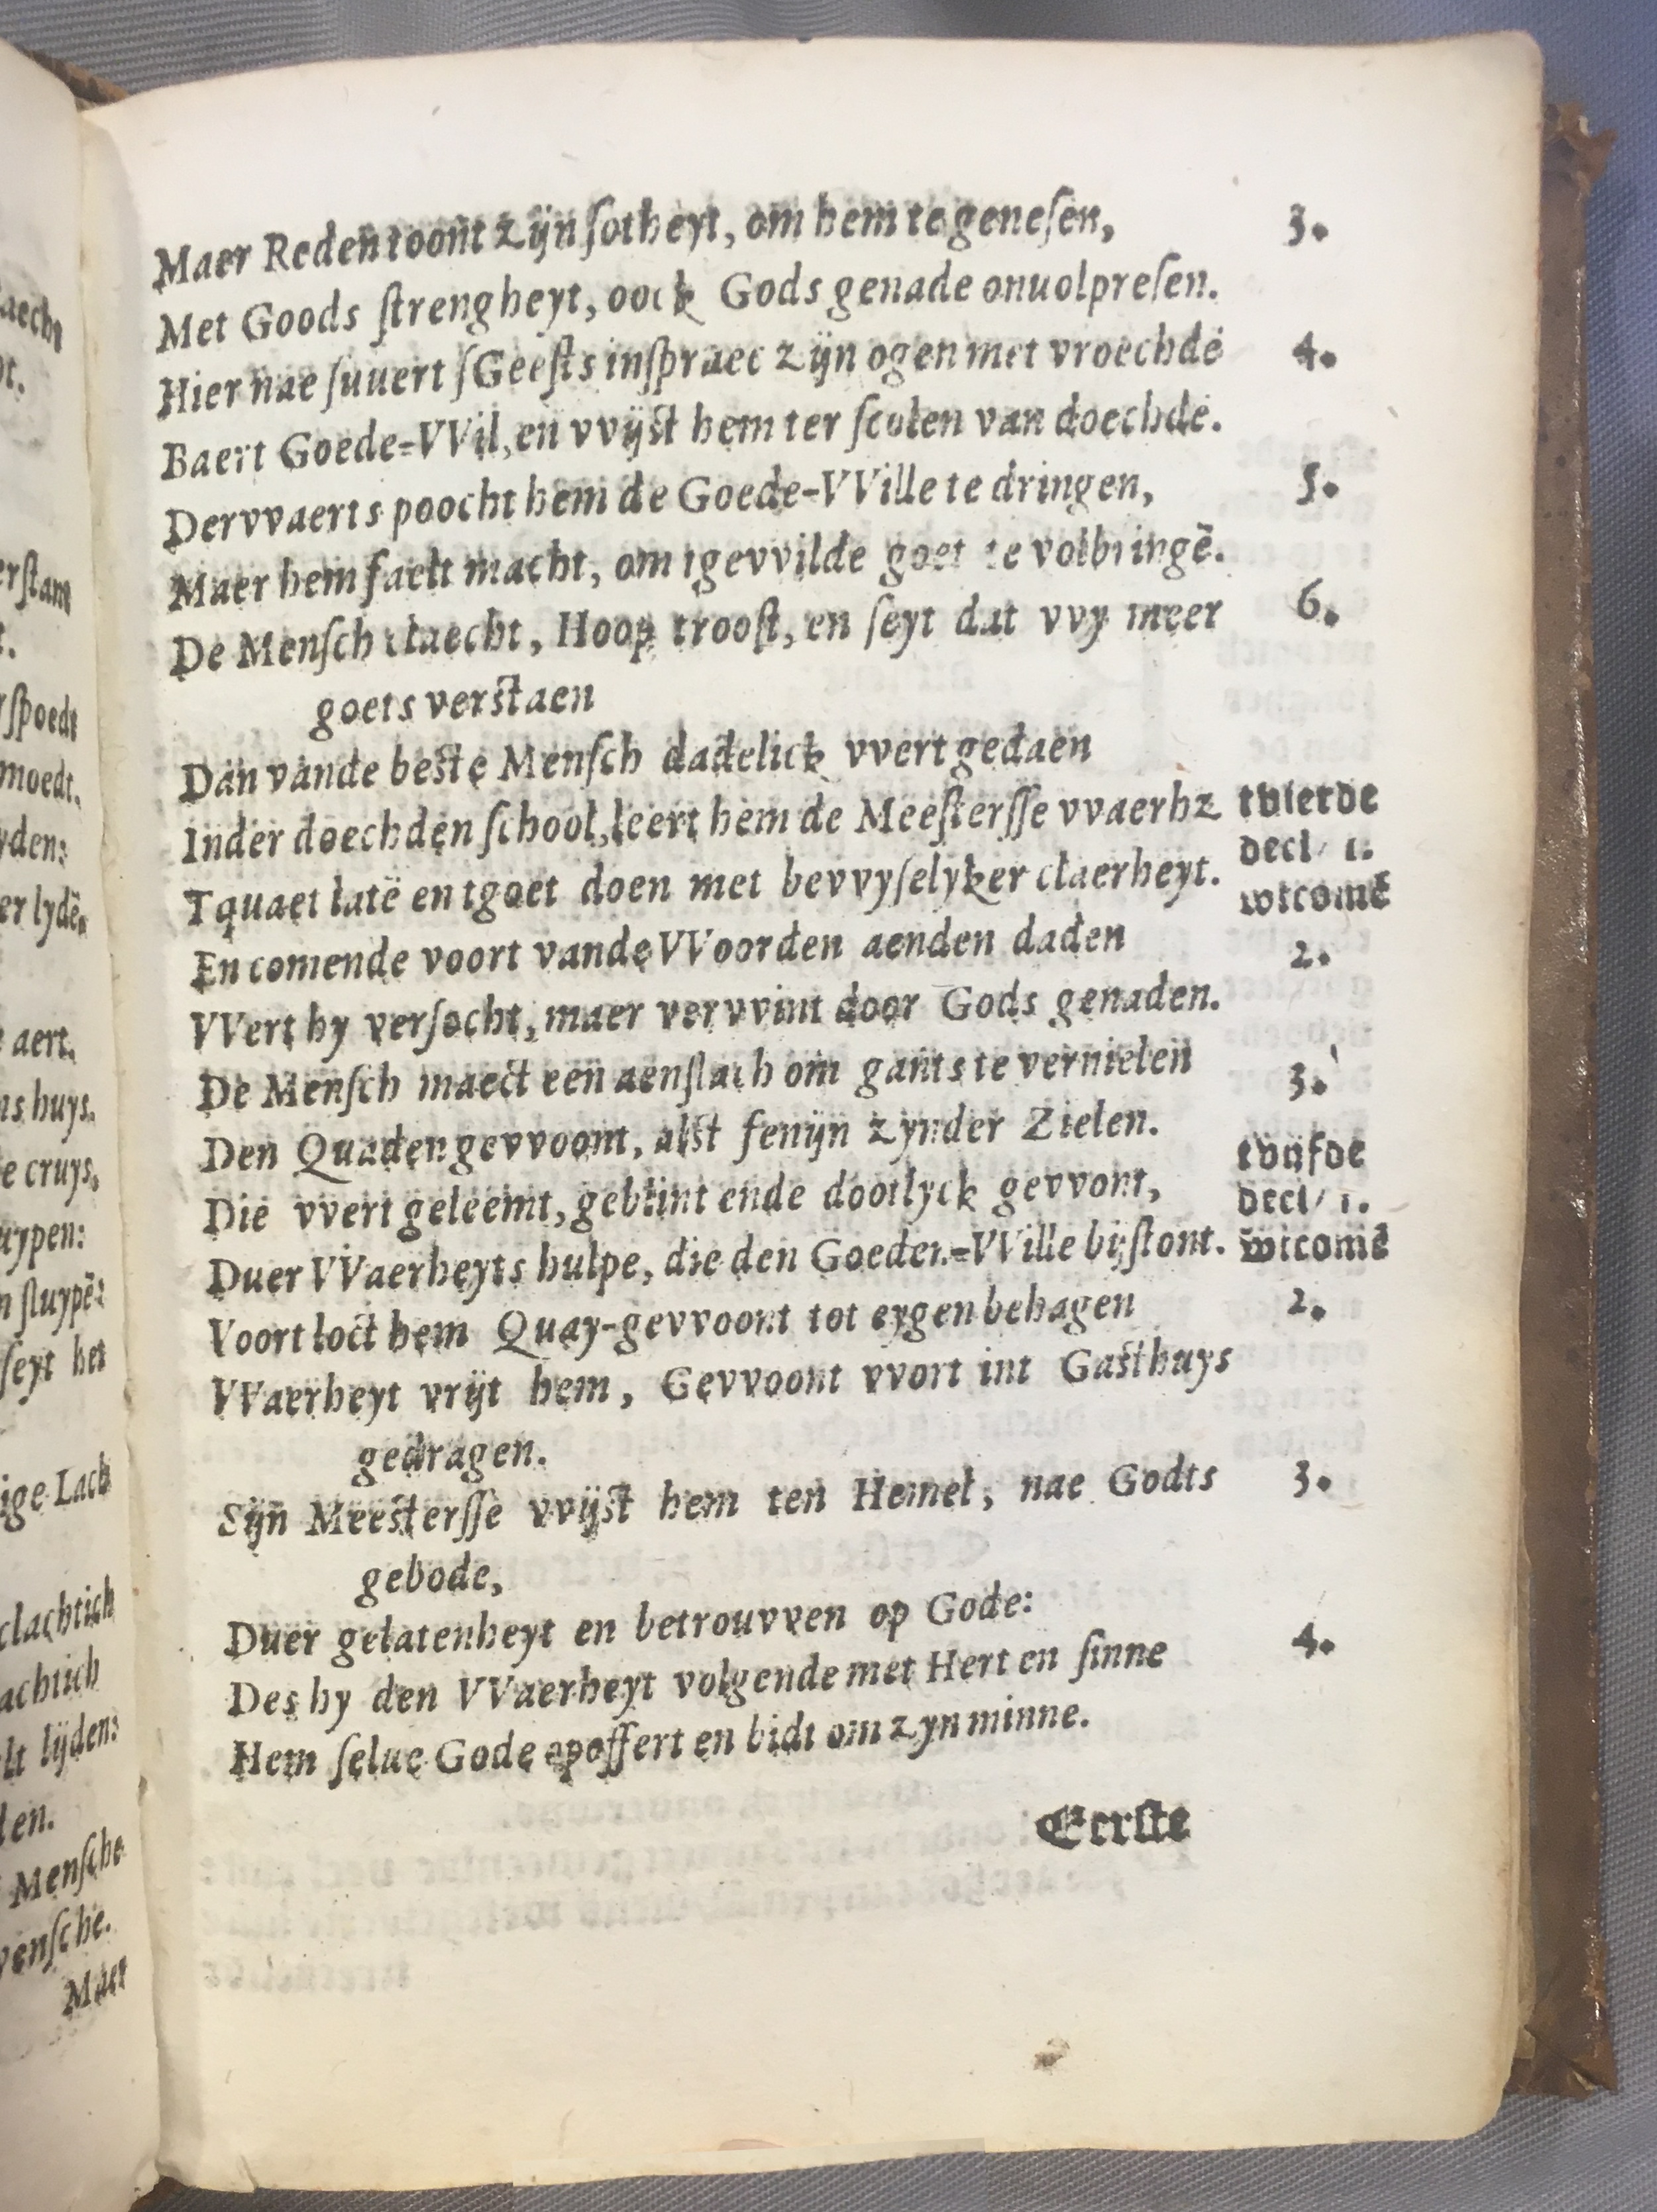 Maer Reden toont zijn ſotheyt, om hem te geneſen, 3.
Met Goods ſtrengheyt, oock Gods genade onuolpreſen.
Hier nae ſuuert ſGeeſts inſpraec zijn ogen met vroechdē 4.
Baert Goede-VVil, en vvijſt hem ter ſcolen van doechdē.
Dervvaerts poocht hem de Goede-VVille te dringen, 5.
Maer hem faelt macht, om tgevvilde goet te volbringē.
De Menſch claecht, Hoop trooſt, en ſeyt dat vvy meer 6.
goets verſtaen
Dan vande beſte Menſch dadelick vvert gedaen
Inder doechden ſchool, leert hem de Meeſterſſe vvaerhz tvierde
Tquaet latē en tgoet doen met bevvyſelyker claerheyt. deel/ 1.
wtcomē
En comende voort vande VVoorden aenden daden 2.
VVert hy verſocht, maer vervvint door Gods genaden.
De Menſch maect een aenſlach om gants te vernielen 3.
Den Quaden gevvoont, alſt fenijn zynder Zielen.
Die vvert geleemt, geblint ende dootlyck gevvont, tvijfde
deel/ 1.
Duer VVaerheyts hulpe, die den Goeden-VVille bijſtont. wtcomē
Voort loct hem Quay-gevvoont tot eygen behagen 2.
VVaerheyt vrijt hem, Gevvoont vvort int Gaſthuys
gedragen.
Sijn Meeſterſſe vvijſt hem ten Hemel, nae Godts 3.
gebode,
Duer gelatenheyt en betrouvven op Gode:
Des hy den VVaerheyt volgende met Hert en ſinne 4.
Hem ſelue Gode opoffert en bidt om zyn minne.
Eerſte